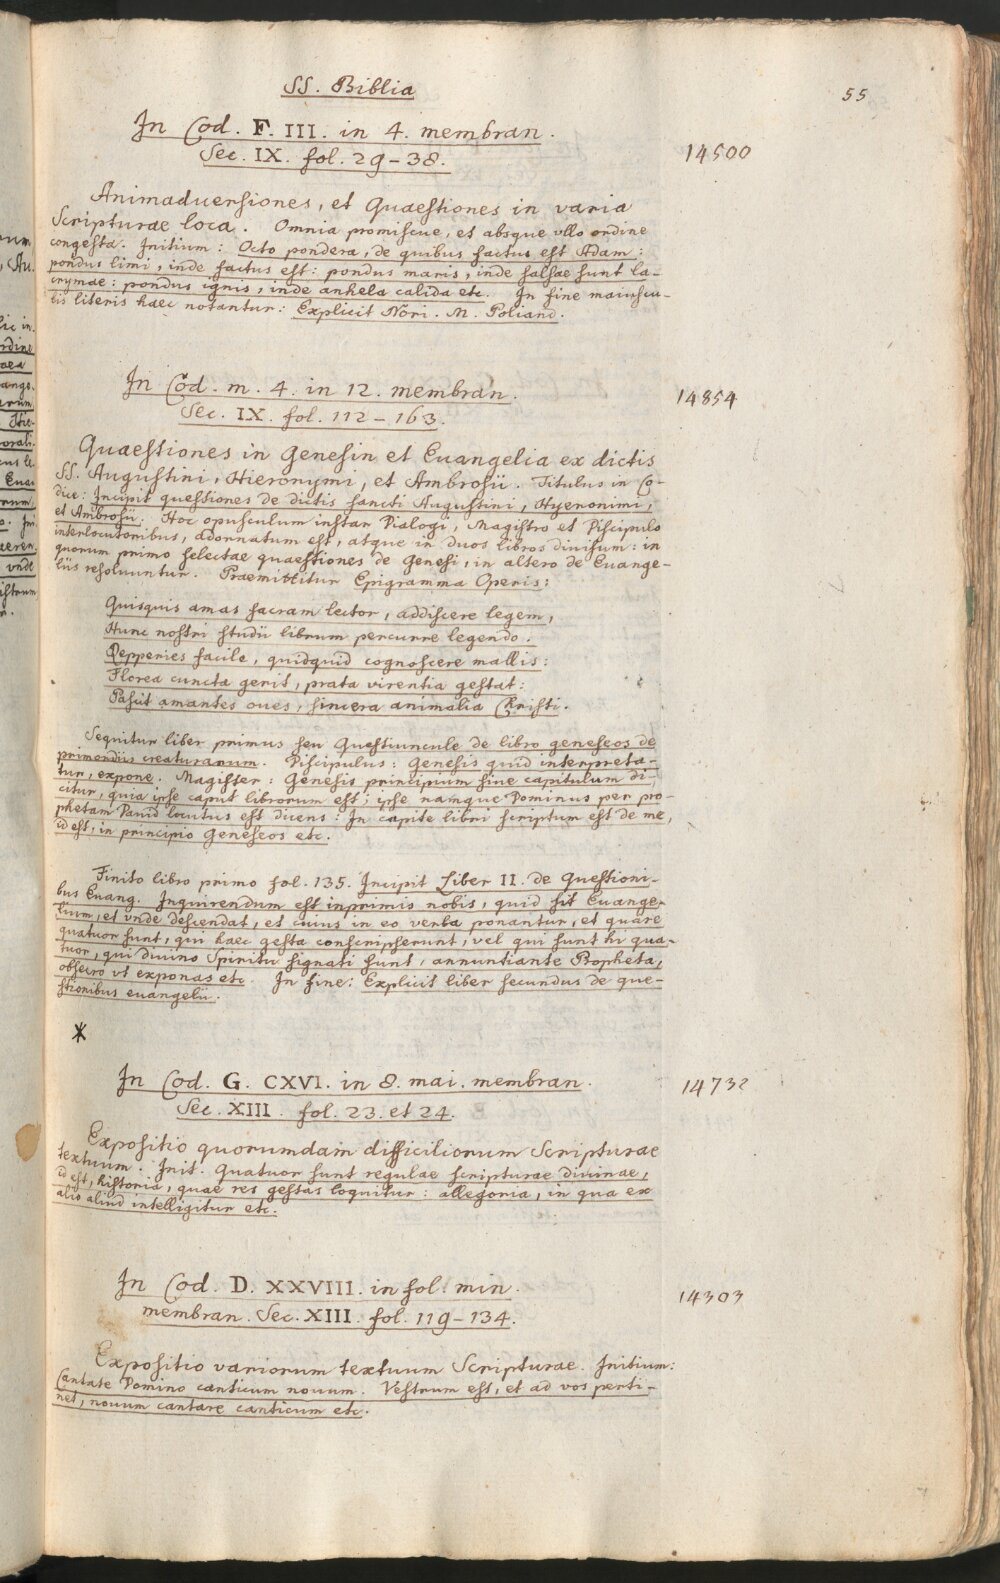 SS. Biblia
55
In Cod. F. III. in 4. membran.
Sec. IX. fol. 29-38.
14500
Animaduersiones, et Quaestiones in varia
Scripturae loca. Omnia promiscue, et absque vllo ordine
congesta. Initium: Octo pondera, de quibus factus est Adam:
pondus limi, inde factus est: pondus maris, inde salsae sunt la-
crymae: pondus ignis, inde anhela calida etc. In fine maiuscu-
lis literis haec notantur: Explicit Nori. M. Poliand.
In Cod. m. 4. in 12. membran.
Sec. IX. fol. 112-163.
14854
Quaestiones in Genesin et Euangelia ex dictis
SS. Augustini, Hieronymi, et Ambrosii. Titulus in Co-
dice: Incipit questiones de dictis sancti Augustini, Hyeronimi,
et Ambrosii. Hoc opusculum instar Dialogi, Magistro et Discipulo
interlocutoribus, adornatum est, atque in duos libros diuisum: in
quorum primo selectae quaestiones de Genesi, in altero de Euange-
liis resoluuntur. Praemittitur Epigramma Operis:
Quisquis amas sacram lector, addiscere legem,
Hunc nostri studii librum percurre legendo.
Repperies facile, quidquid cognoscere mallis:
Florea cuncta gerit, prata virentia gestat:
Pascit amantes oues, sincera animalia Christi.
Sequitur liber primus seu Questiuncule de libro geneseos de
primendiis creaturarum. Discipulus: Genesis quid interpreta-
tur, expone. Magister: Genesis principium siue capitulum di-
citur, quia ipse caput librorum est; ipse namque Dominus per pro-
phetam Dauid locutus est dicens: In capite libri scriptum est de me,
id est, in principio Geneseos etc.
Finito libro primo fol. 135. Incipit Liber II. de Questioni-
bus Euang. Inquirendum est inprimis nobis, quid sit Euange-
lium, et vnde descendat, et cuius in eo verba ponantur, et quare
quatuor sunt, qui haec gesta conscripserunt, vel qui sunt hi qua-
tuor, qui Diuino Spiritu signati sunt, annuntiante Propheta,
obsecro vt exponas etc. In fine: Explicit liber secundus de que-
stionibus euangelii.
*
In Cod. G. CXVI. in 8. mai. membran.
Sec. XIII. fol. 23. et 24.
14732
Expositio quorumdam difficiliorum Scripturae
textuum. Init. Quatuor sunt regulae scripturae diuinae,
id est, historia, quae res gestas loquitur: allegoria, in qua ex
alio aliud intelligitur etc.
In Cod. D. XXVIII. in fol. min.
membran. Sec. XIII. fol. 119-134.
14303
Expositio variorum textuum Scripturae. Initium:
Cantate Domino canticum nouum. Vestrum est, et ad vos perti-
net, nouum cantare canticum etc.